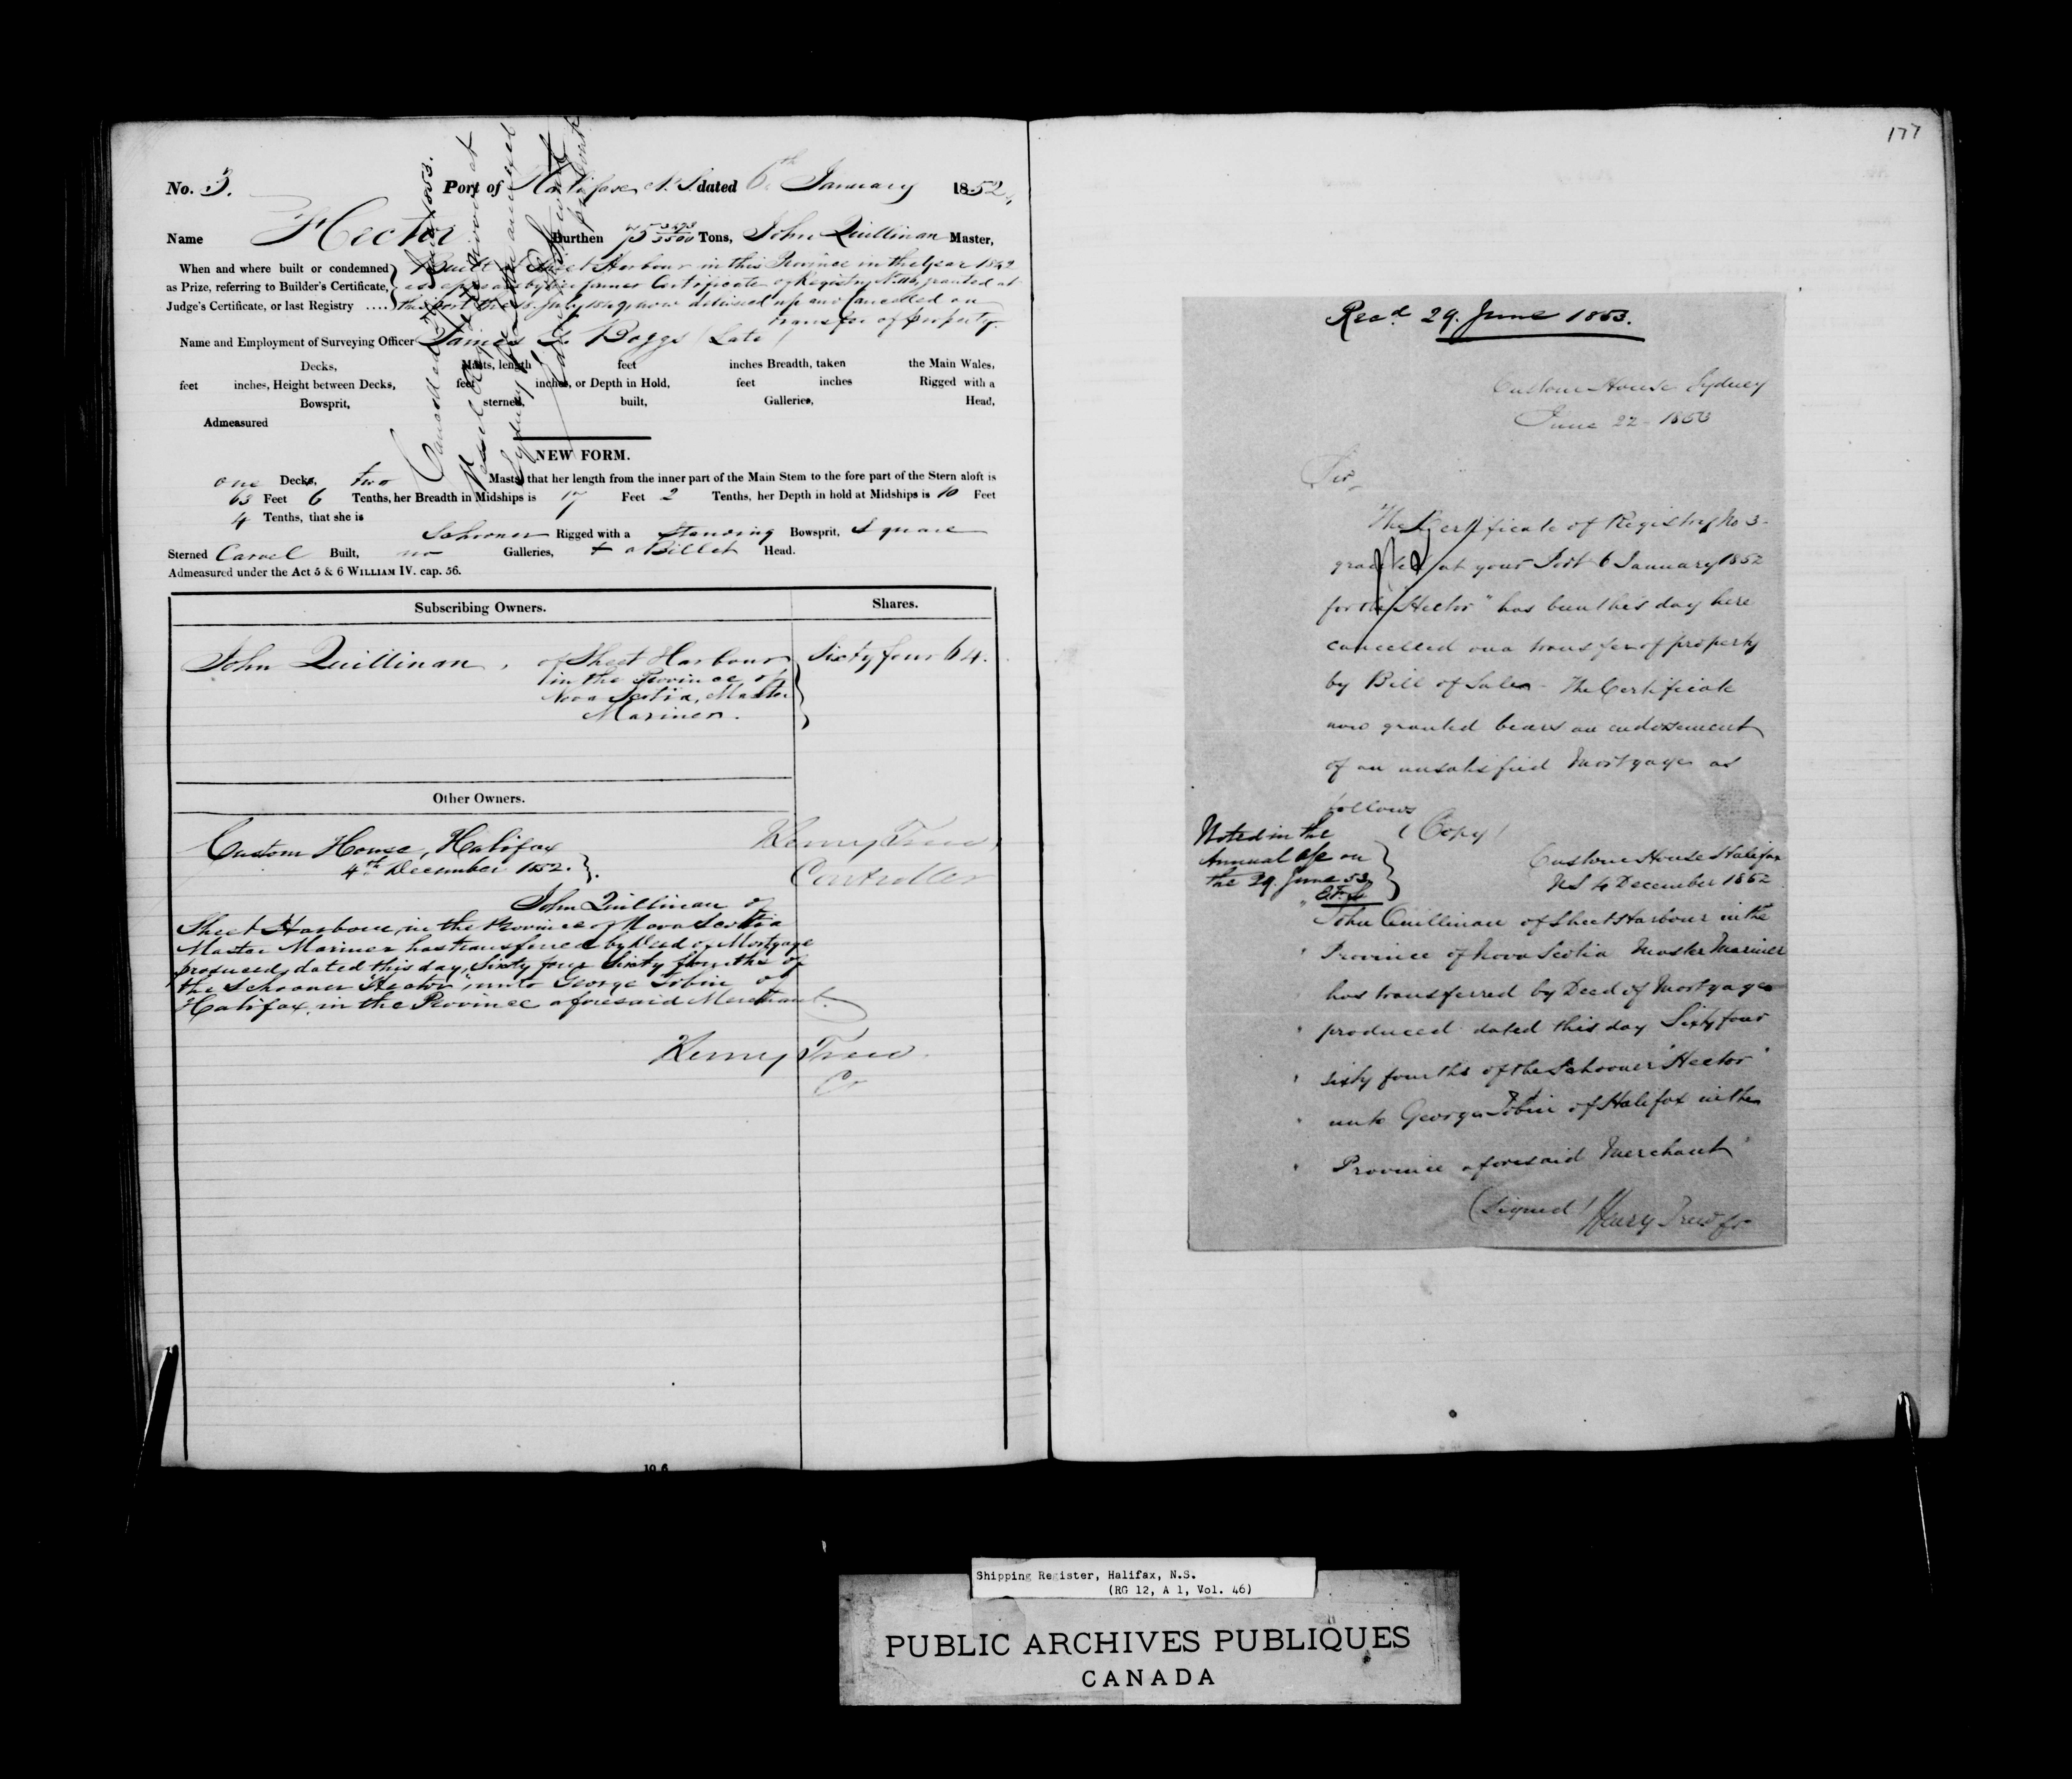 No. 3. Port of Halifax N.S. dated 6th January 1852,
Name Hector Burthen 75 Tons, John Quillinan Master,
When and where built or condemned Built at Sheet Harbour in this Province in the Year
as Prize, referring to Builder's Certificate, as appears by her former Certificate of Registry granted at
Judge's Certificate, or last Registry .... this port the 18 July 1849, now delivered up and Cancelled on
transfer of property.
Name and Employment of Surveying Officer James Boggs (Late)
Decks, Masts, length feet inches Breadth, taken the Main Wales,
feet inches, Height between Decks, feet inches, or Depth in Hold, feet inches Rigged with a
Bowsprit, sterned, built, Galleries, Head,
Admeasured
NEW FORM.
one Decks, two Masts, that her length from the inner part of the Main Stem to the fore part of the Stern aloft is
63 Feet 6 Tenths, her Breadth in Midships is 17 Feet 2 Tenths, her Depth in hold at Midships is 10 Feet
4 Tenths, that she is
Schooner Rigged with a Standing Bowsprit, Square
Sterned Carvel Built, no Galleries, + a Billet Head.
Admeasured under the Act 5 & 6 WILLIAM IV. cap. 56.
Subscribing Owners. Shares.
John Quillinan, of Sheet Harbour Sixty four 64.
in the Province of
Nova Scotia, Master
Mariner.
Other Owners.
Custom House, Halifax
4th December 1852.
Henry Trew
Controller
John Quillinan of
Sheet Harbour, in the Province of Nova Scotia
Master Mariner has transferred by Deed of Mortgage
produced, dated this day, Sixty four Sixty fourths of
the Schooner "Hector", unto George Tobin of
Halifax, in the Province aforesaid Merchant.
Henry Trew
Cr
10 6
177
Recd. 29. June 1853.
Custom House Sydney
June 22 1853
Sir,
The Certificate of Registry No 3
granted at your Port 6 January 1852
for the "Hector" has been this day here
cancelled on a transfer of property
by Bill of Sale - The Certificate
now granted bears an endorsement
of an unsatisfied Mortgage as
follows
(Copy)
Noted in the
Annual a/c on
the 29. June 53
Custom House Halifax
NS 4 December 1852
" John Quillinan of Sheet Harbour in the
" Province of Nova Scotia Master Mariner
has transferred by Deed of Mortgage
" produced dated this day Sixty four
" sixty fourths of the Schooner "Hector"
" unto George Tobin of Halifax in the
" Province aforesaid Merchant"
(Signed) Henry Trew Cr
Shipping Register, Halifax, N.S.
(RG 12, A 1, Vol. 46)
PUBLIC ARCHIVES PUBLIQUES
CANADA